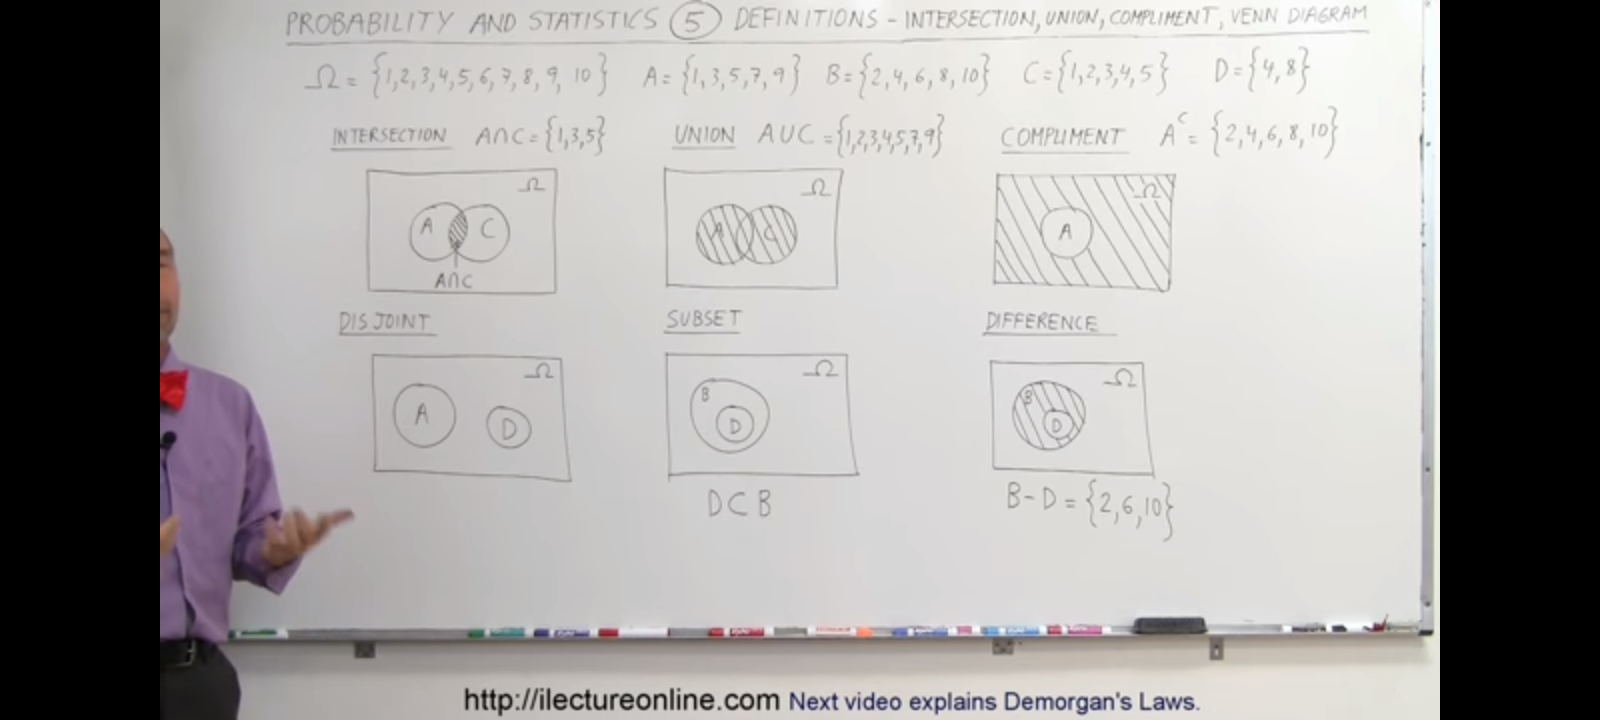 PROBABILITY AND STATISTICS 5 DEFINITIONS - INTERSECTION, UNION, COMPLIMENT, VENN DIAGRAM
Ω = {1,2,3,4,5,6,7,8,9,10} A = {1,3,5,7,9} B = {2,4,6,8,10} C = {1,2,3,4,5} D = {4,8}
INTERSECTION A∩C = {1,3,5} UNION A∪C = {1,2,3,4,5,7,9} COMPLIMENT Aᶜ = {2,4,6,8,10}
Ω Ω Ω
A C A C A
A∩C
DISJOINT SUBSET DIFFERENCE
Ω Ω Ω
A D B D B D
D⊂B B-D = {2,6,10}
http://ilectureonline.com Next video explains Demorgan's Laws.